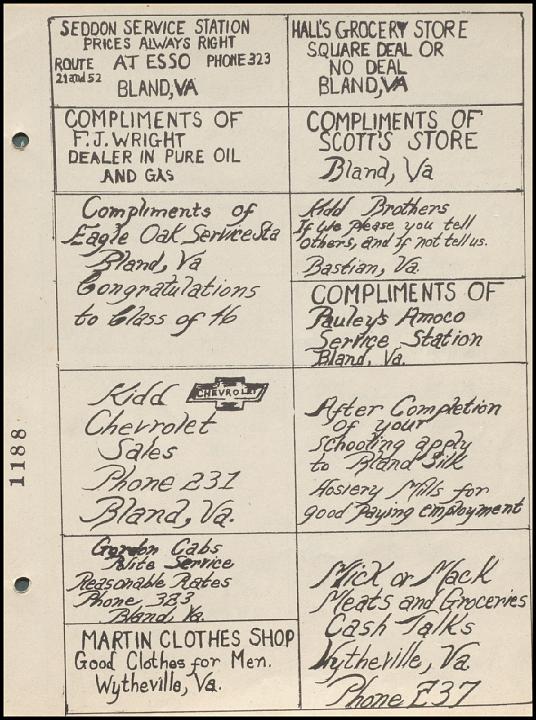 SEDDON SERVICE STATION
PRICES ALWAYS RIGHT
ROUTE AT ESSO PHONE 323
21 and 52
BLAND, VA
HALL'S GROCERY STORE
SQUARE DEAL OR
NO DEAL
BLAND, VA
COMPLIMENTS OF
F.J. WRIGHT
DEALER IN PURE OIL
AND GAS
COMPLIMENTS OF
SCOTT'S STORE
Bland, Va
Compliments of
Eagle Oak Service Sta
Bland, Va
Congratulations
to Class of 46
Kidd Brothers
If We Please you tell
others, and if not tell us.
Bastian, Va.
COMPLIMENTS OF
Pauley's Amoco
Service Station
Bland, Va.
Kidd CHEVROLET
Chevrolet
Sales
Phone 231
Bland, Va.
After Completion
of your
schooling apply
to Bland Silk
Hosiery Mills for
good Paying employment
1188
Gordon Cabs
Nite Service
Reasonable Rates
Phone, 323
Bland, Va.
MARTIN CLOTHES SHOP
Good Clothes for Men.
Wytheville, Va.
Mick or Mack
Meats and Groceries
Cash Talks
Wytheville, Va
Phone 237